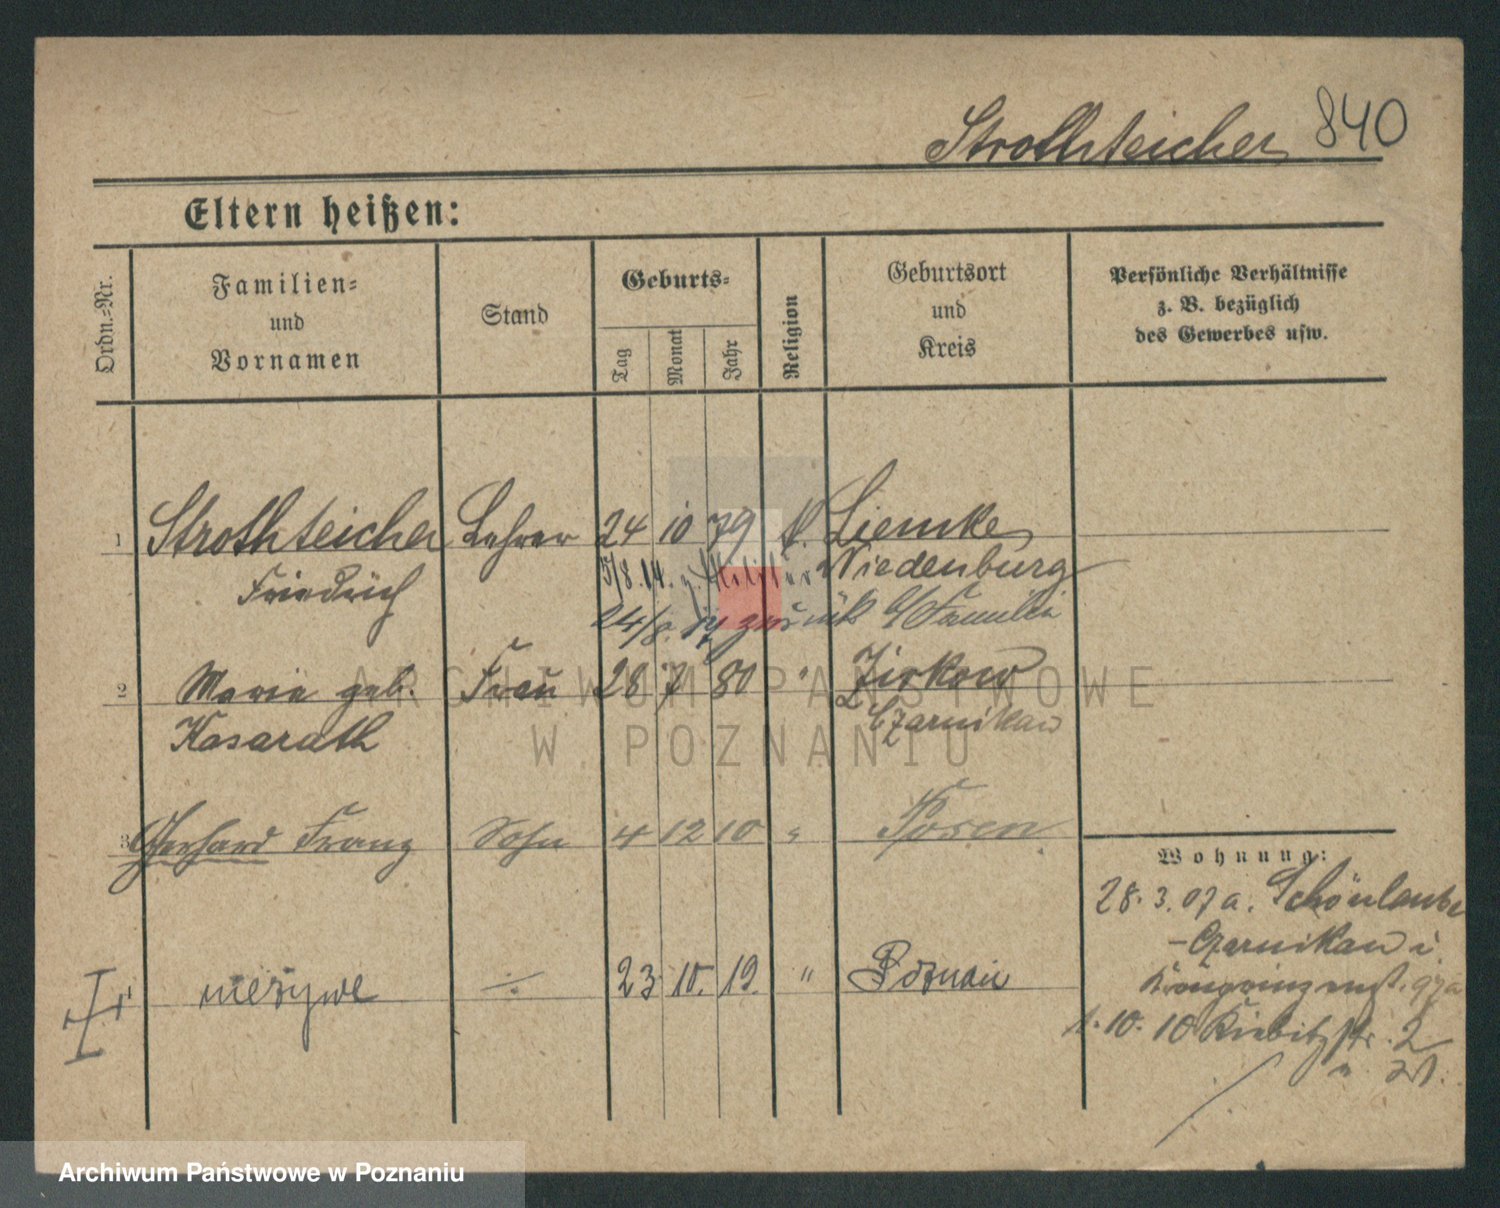 Strothteicher 840
Eltern heißen:
Ordn.=Nr.
Familien=
und
Vornamen
Stand
Geburts=
Tag
Monat
Jahr
Religion
Geburtsort
und
Kreis
Persönliche Verhältnisse
z. B. bezüglich
des Gewerbes usw.
1 Strothteicher Lehrer 24 10 79 k. Liemke
Friedrich 5/8.14. z. Militär Wiedenburg
24/8. 14 zurück b/Familie
2 Maria geb. Frau 28 7 80 " Zirkow
Kasarath Czarnikau
3 Gerhard Franz Sohn 4 12 10 " Posen
Wohnung:
28. 3. 07 a. Schönlanke
- Czarnikau i.
Kronprinzenst. 97a
nieżywe ÷ 23 10. 19. " Poznań
1. 10. 10 Kiebitzstr. 2
ARCHIWUM PAŃSTWOWE
W POZNANIU
Archiwum Państwowe w Poznaniu